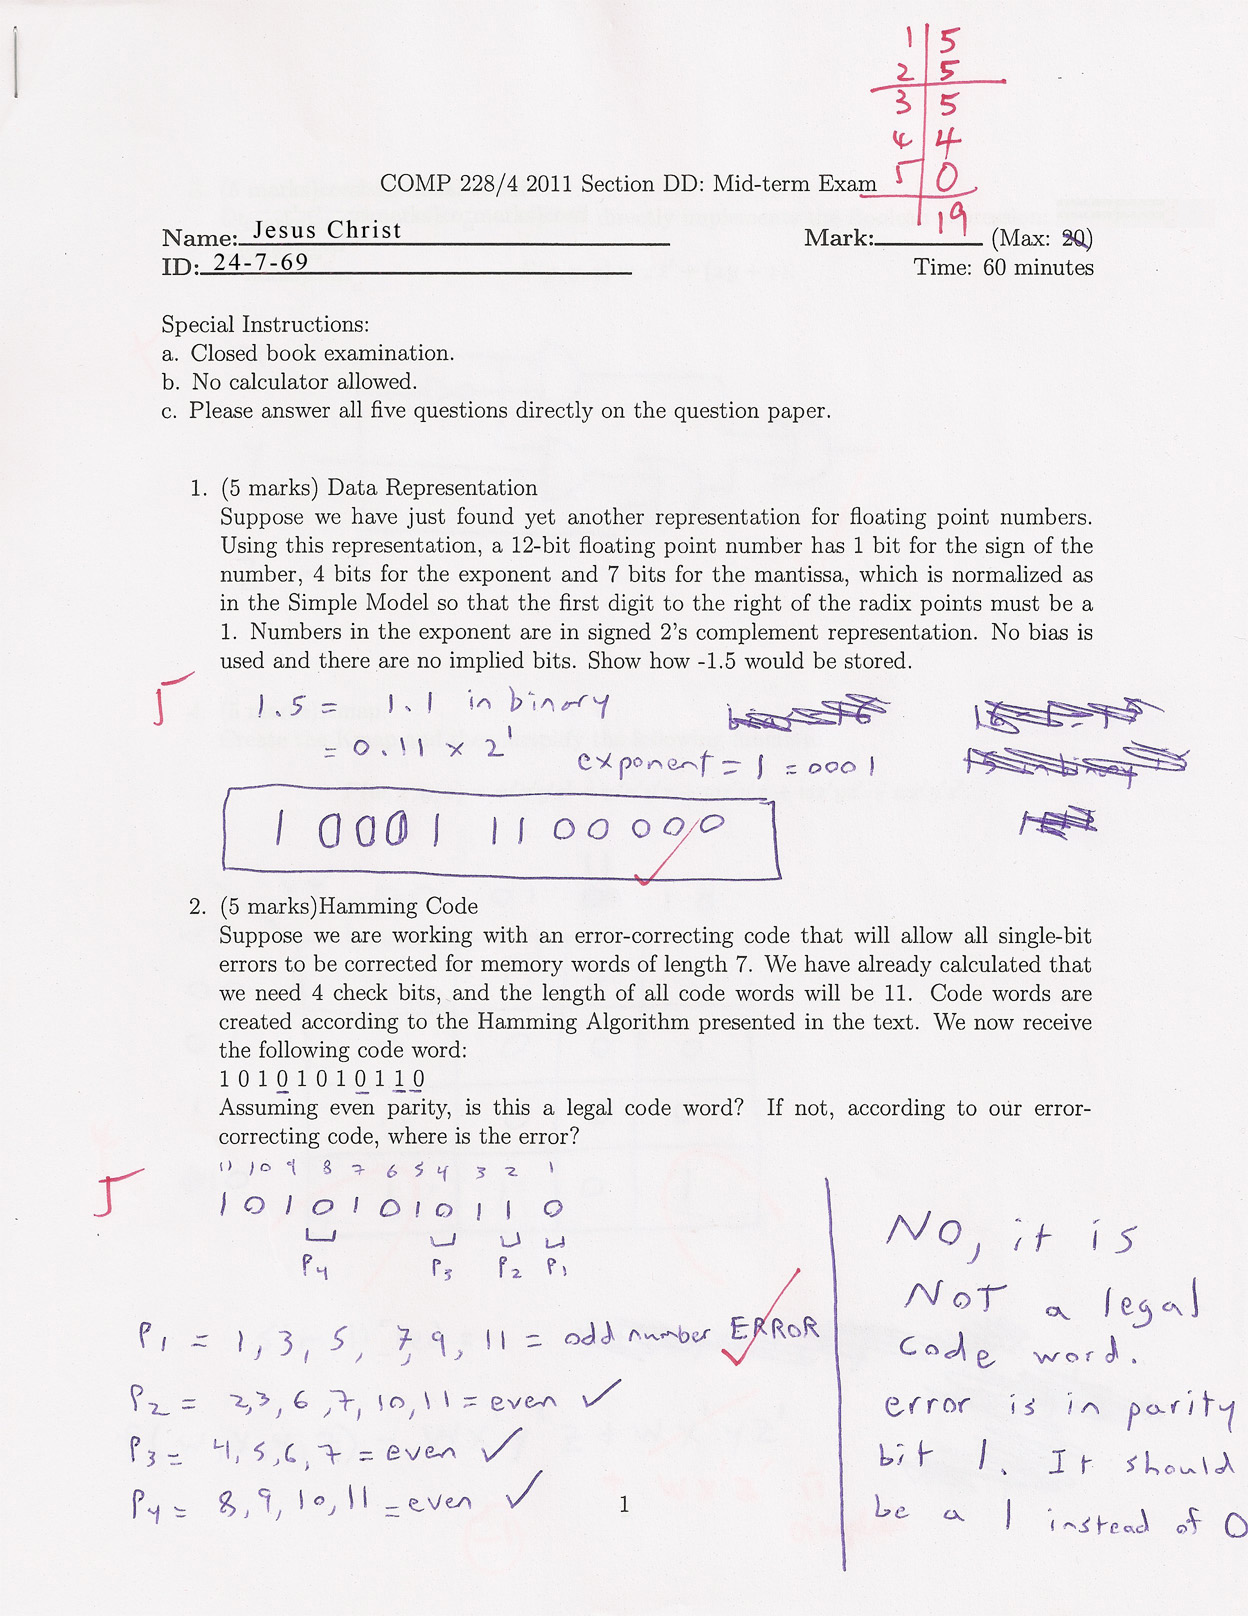 1 5
2 5
3 5
4 4
5 0
19
COMP 228/4 2011 Section DD: Mid-term Exam
Name: Jesus Christ
Mark: (Max: 20)
ID: 24-7-69
Time: 60 minutes
Special Instructions:
a. Closed book examination.
b. No calculator allowed.
c. Please answer all five questions directly on the question paper.
1. (5 marks) Data Representation
Suppose we have just found yet another representation for floating point numbers.
Using this representation, a 12-bit floating point number has 1 bit for the sign of the
number, 4 bits for the exponent and 7 bits for the mantissa, which is normalized as
in the Simple Model so that the first digit to the right of the radix points must be a
1. Numbers in the exponent are in signed 2's complement representation. No bias is
used and there are no implied bits. Show how -1.5 would be stored.
5
1.5 = 1.1 in binary
= 0.11 x 2^1
exponent = 1 = 0001
1 0001 1100000
2. (5 marks)Hamming Code
Suppose we are working with an error-correcting code that will allow all single-bit
errors to be corrected for memory words of length 7. We have already calculated that
we need 4 check bits, and the length of all code words will be 11. Code words are
created according to the Hamming Algorithm presented in the text. We now receive
the following code word:
1 0 1 0 1 0 1 0 1 1 0
Assuming even parity, is this a legal code word? If not, according to our error-
correcting code, where is the error?
11 10 9 8 7 6 5 4 3 2 1
5
1 0 1 0 1 0 1 0 1 1 0
P4 P3 P2 P1
P1 = 1, 3, 5, 7, 9, 11 = odd number ERROR
P2 = 2,3, 6, 7, 10, 11 = even ✓
P3 = 4, 5, 6, 7 = even ✓
P4 = 8, 9, 10, 11 = even ✓
NO, it is
NOT a legal
code word.
error is in parity
bit 1. It should
be a 1 instead of 0
1